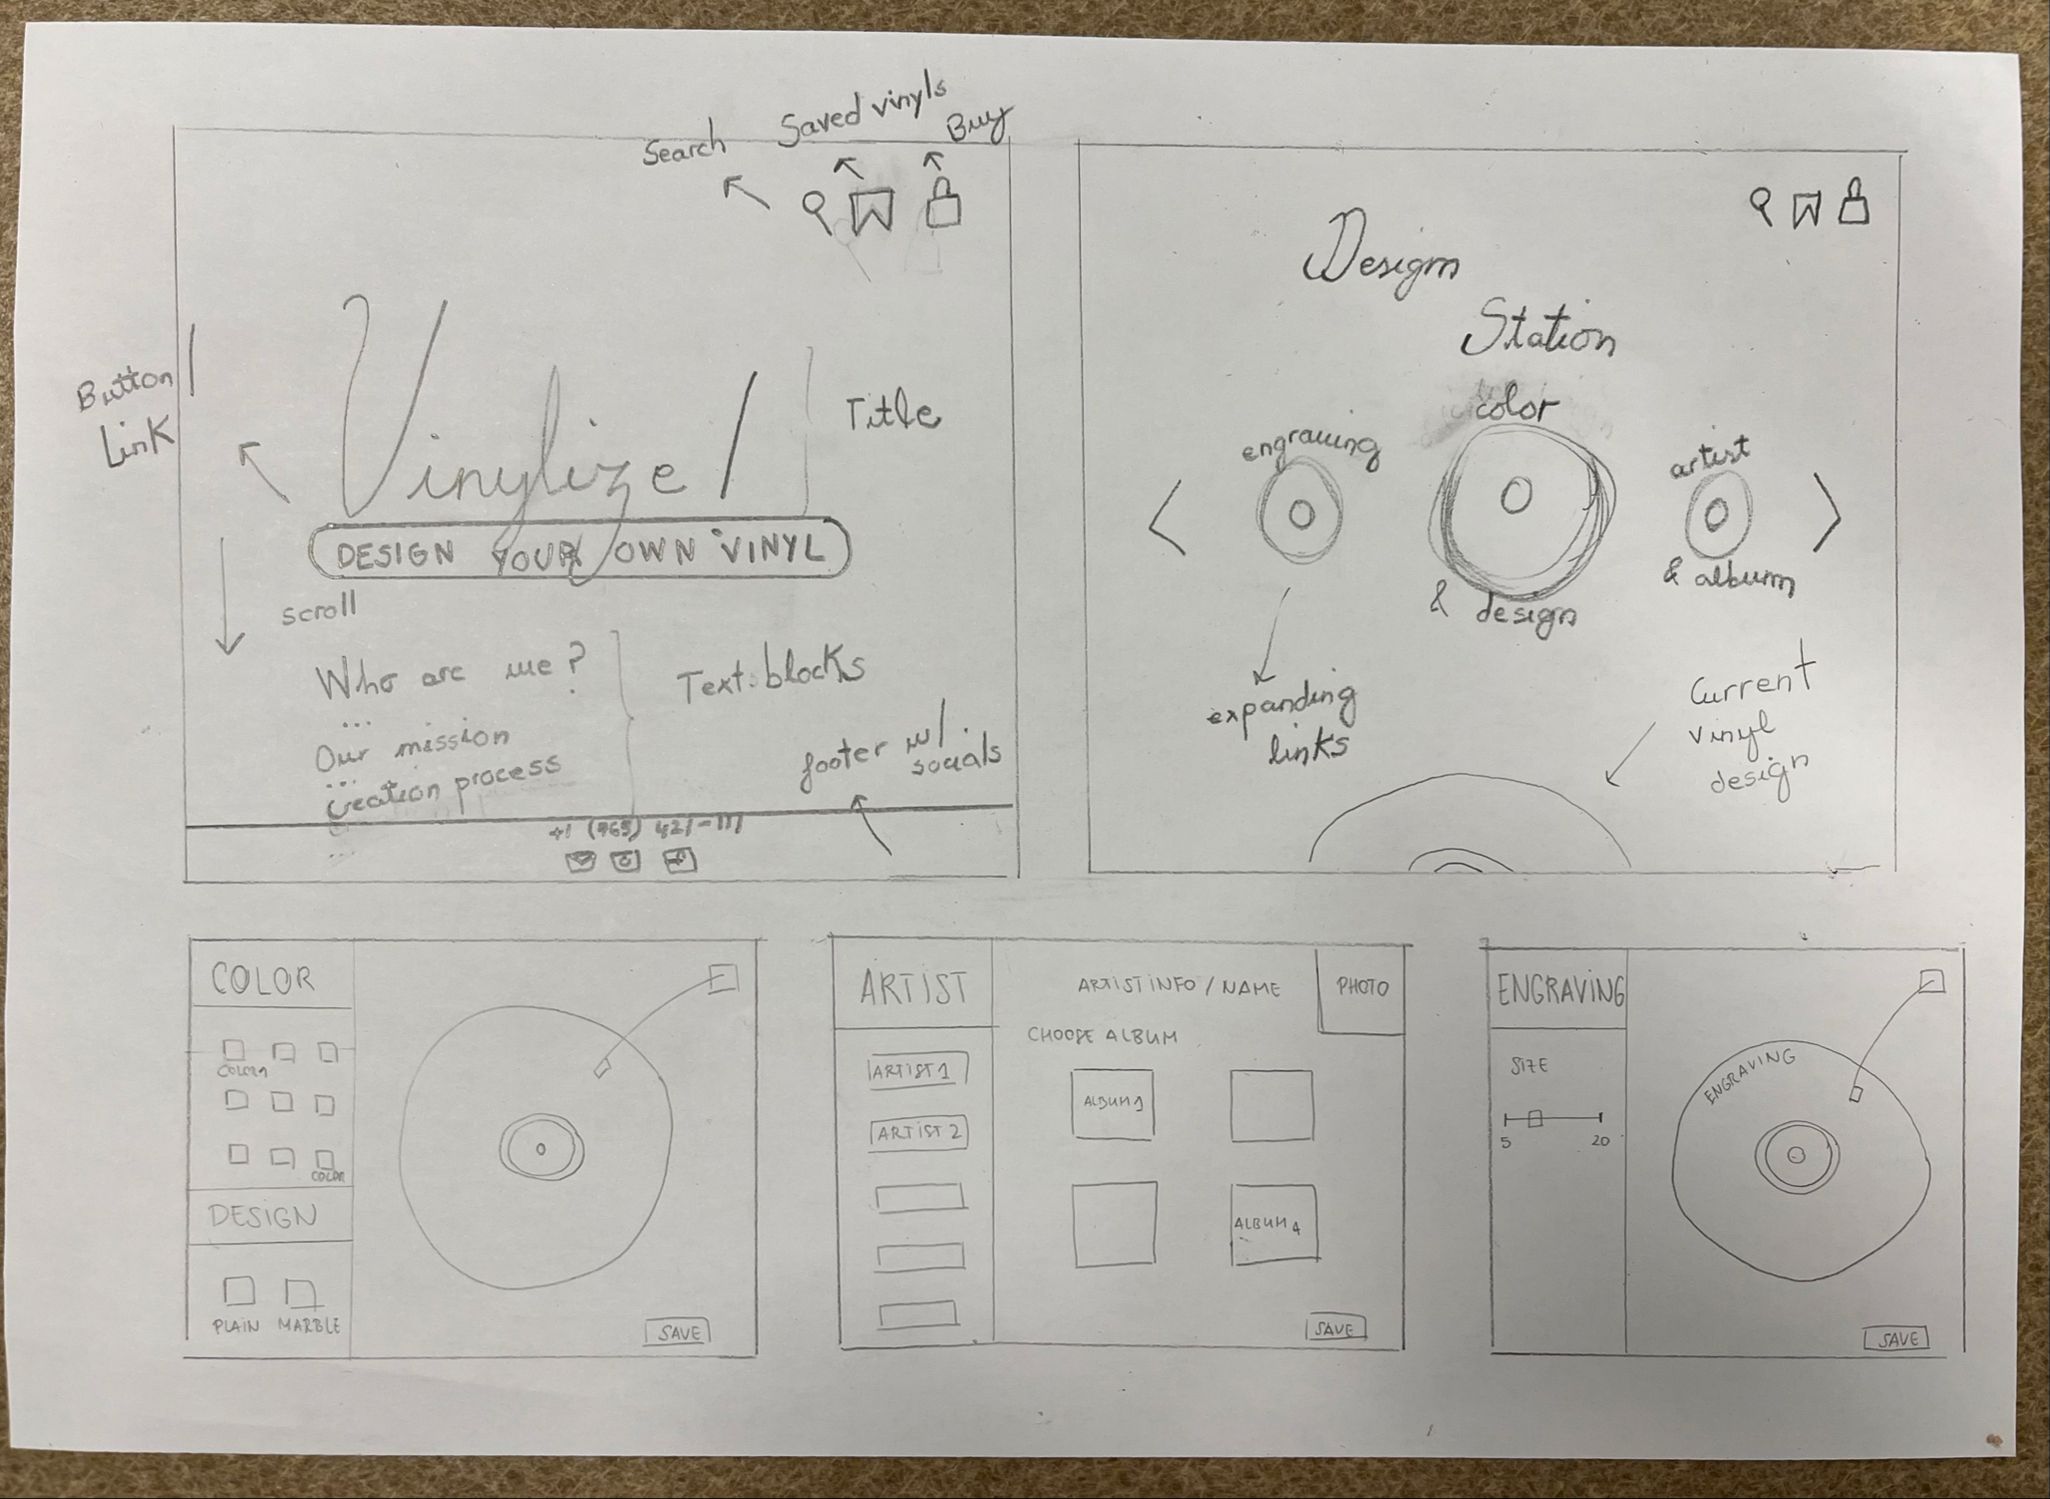 Search
Saved vinyls
Buy
Button/
Link
Vinylize!
Title
DESIGN YOUR OWN VINYL
scroll
Who are we?
...
Our mission
...
Creation process
...
Text blocks
footer w/
socials
Design
Station
engraving
color
& design
artist
& album
expanding
links
Current
vinyl
design
COLOR
COLOR1
COLOR
DESIGN
PLAIN MARBLE
SAVE
ARTIST
ARTIST 1
ARTIST 2
ARTIST INFO / NAME
PHOTO
CHOOSE ALBUM
ALBUM 1
ALBUM 4
SAVE
ENGRAVING
SIZE
5 20
ENGRAVING
SAVE